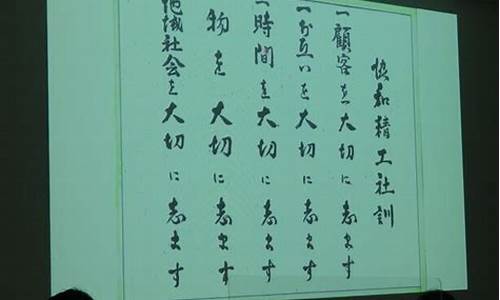 協和精工社訓
一顧客を大切に志ます
一お互いを大切に志ます
一時間を大切に志ます
物を大切に志ます
地域社会を大切に志ます